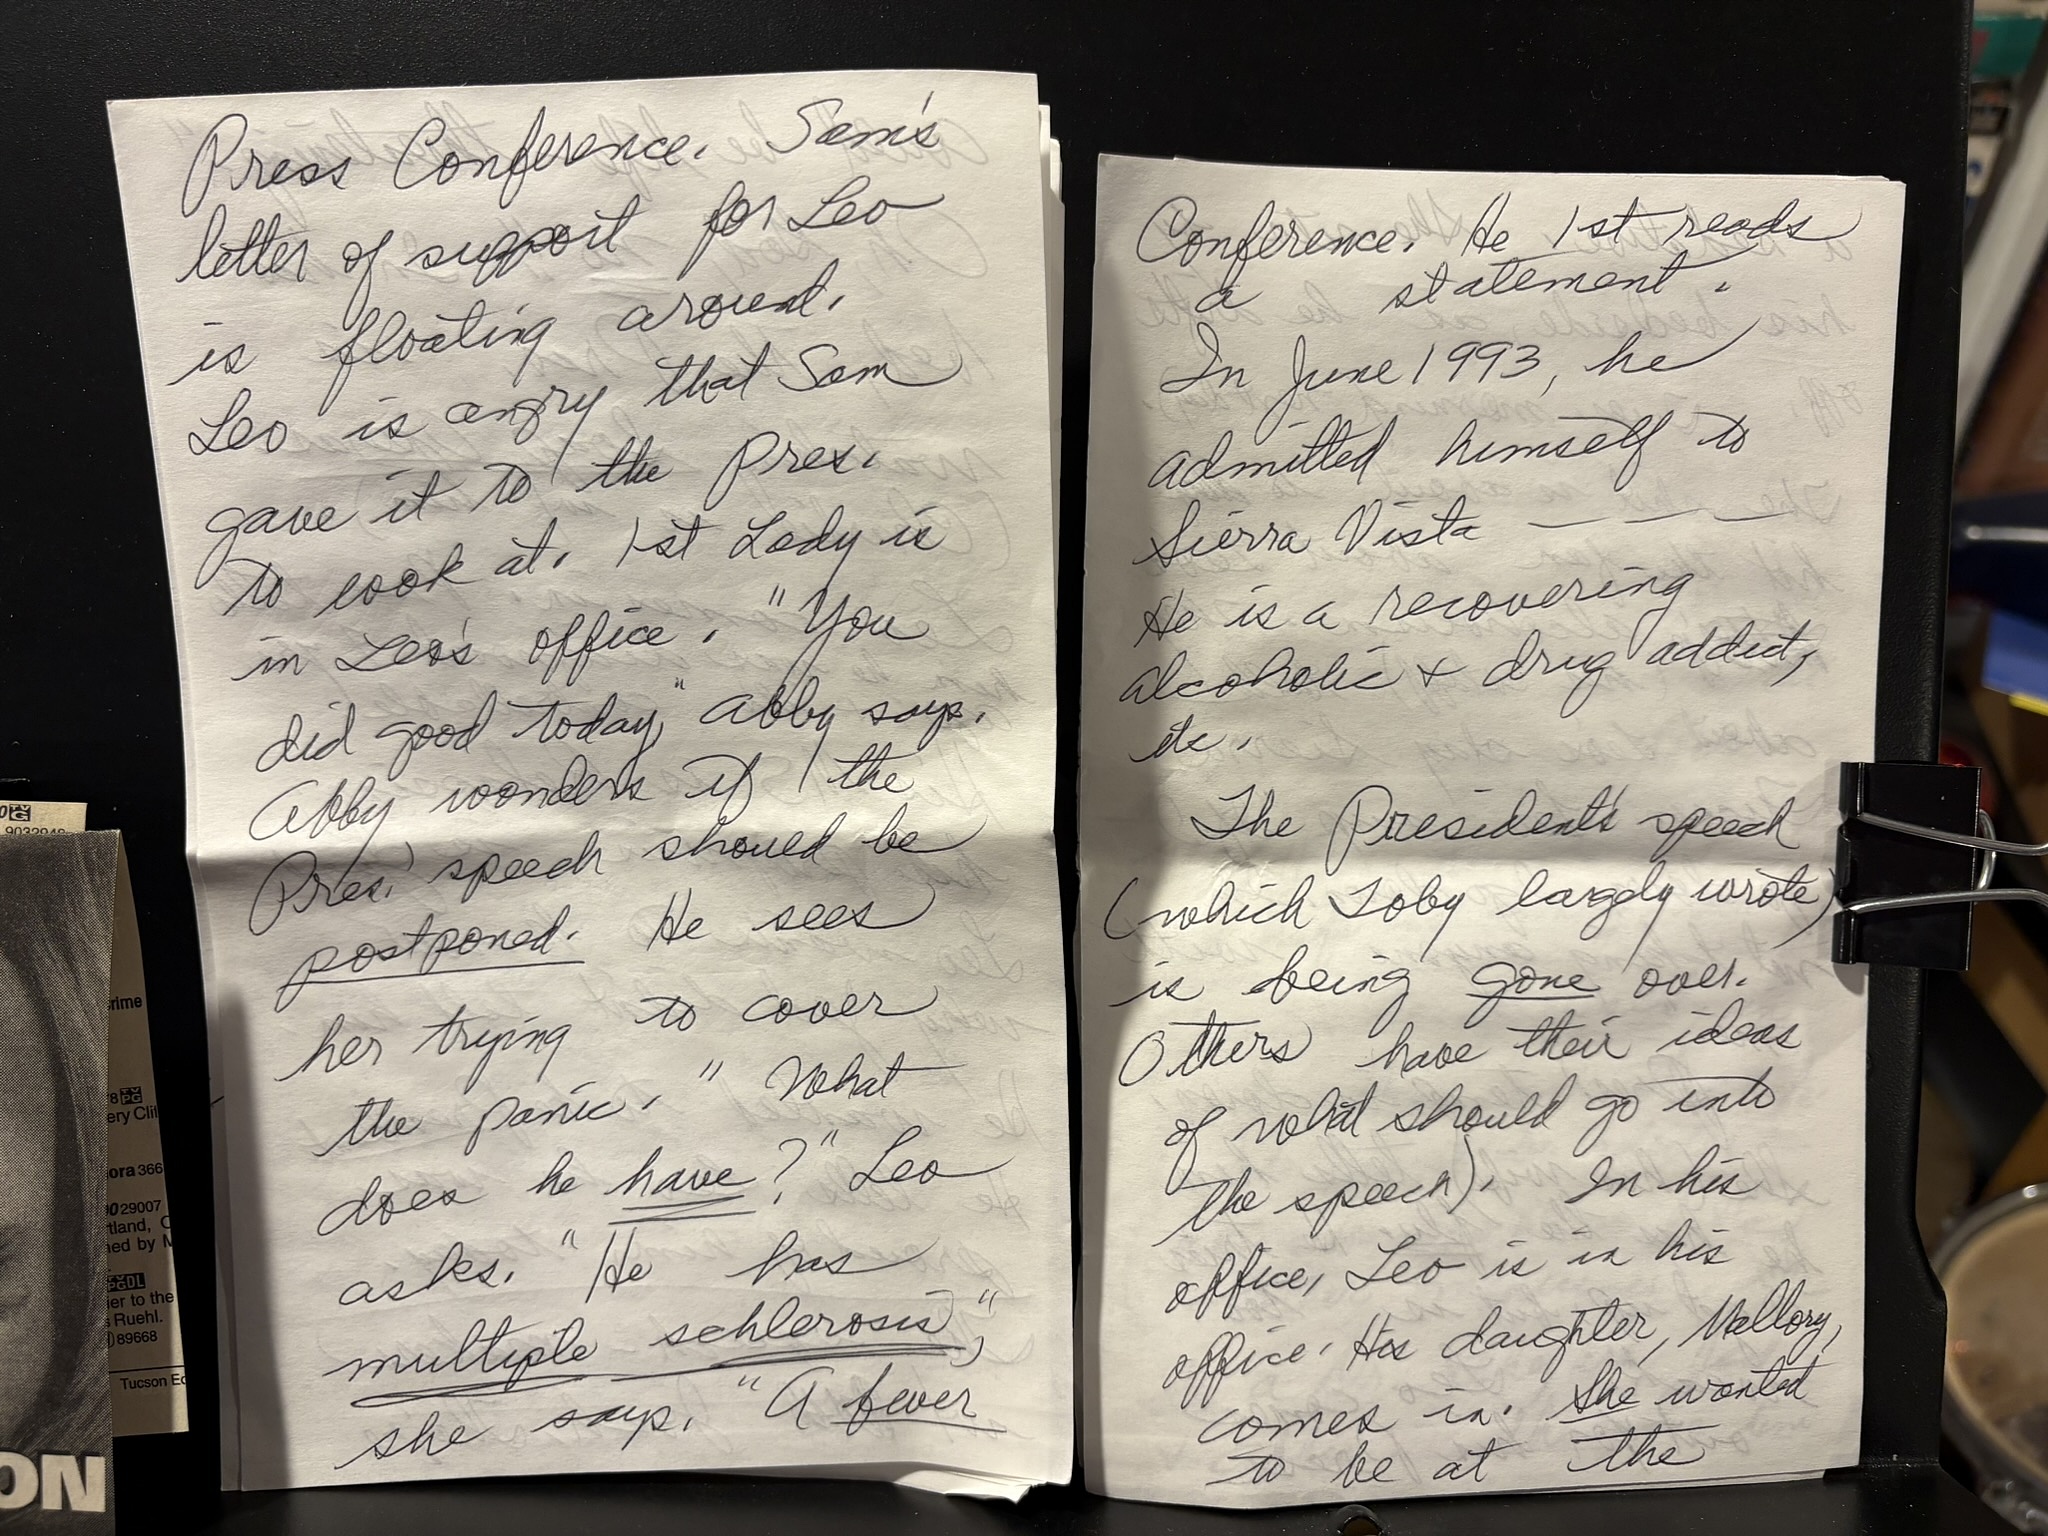 Press Conference. Sam's
letter of support for Leo
is floating around.
Leo is angry that Sam
gave it to the Pres.
to look at. 1st Lady is
in Leo's office. "You
did good today," Abby says.
Abby wonders if the
Pres.' speech should be
postponed. He sees
her trying to cover
the panic. "What
does he have?" Leo
asks. "He has
multiple schlerosis,"
she says. "A fever
Conference. He 1st reads
a statement.
In June 1993, he
admitted himself to
Sierra Vista — — —
He is a recovering
alcoholic & drug addict,
etc.
The President's speech
(which Toby largely wrote)
is being gone over.
Others have their ideas
of what should go into
the speech). In his
office, Leo is in his
office. His daughter, Mallory,
comes in. She wanted
to be at the
TV
G
9032948
rime
78 TV
PG
ery Cli
ora 366
29007
rtland, C
ned by M
PGDL
ier to the
s Ruehl.
89668
Tucson Ed
ON